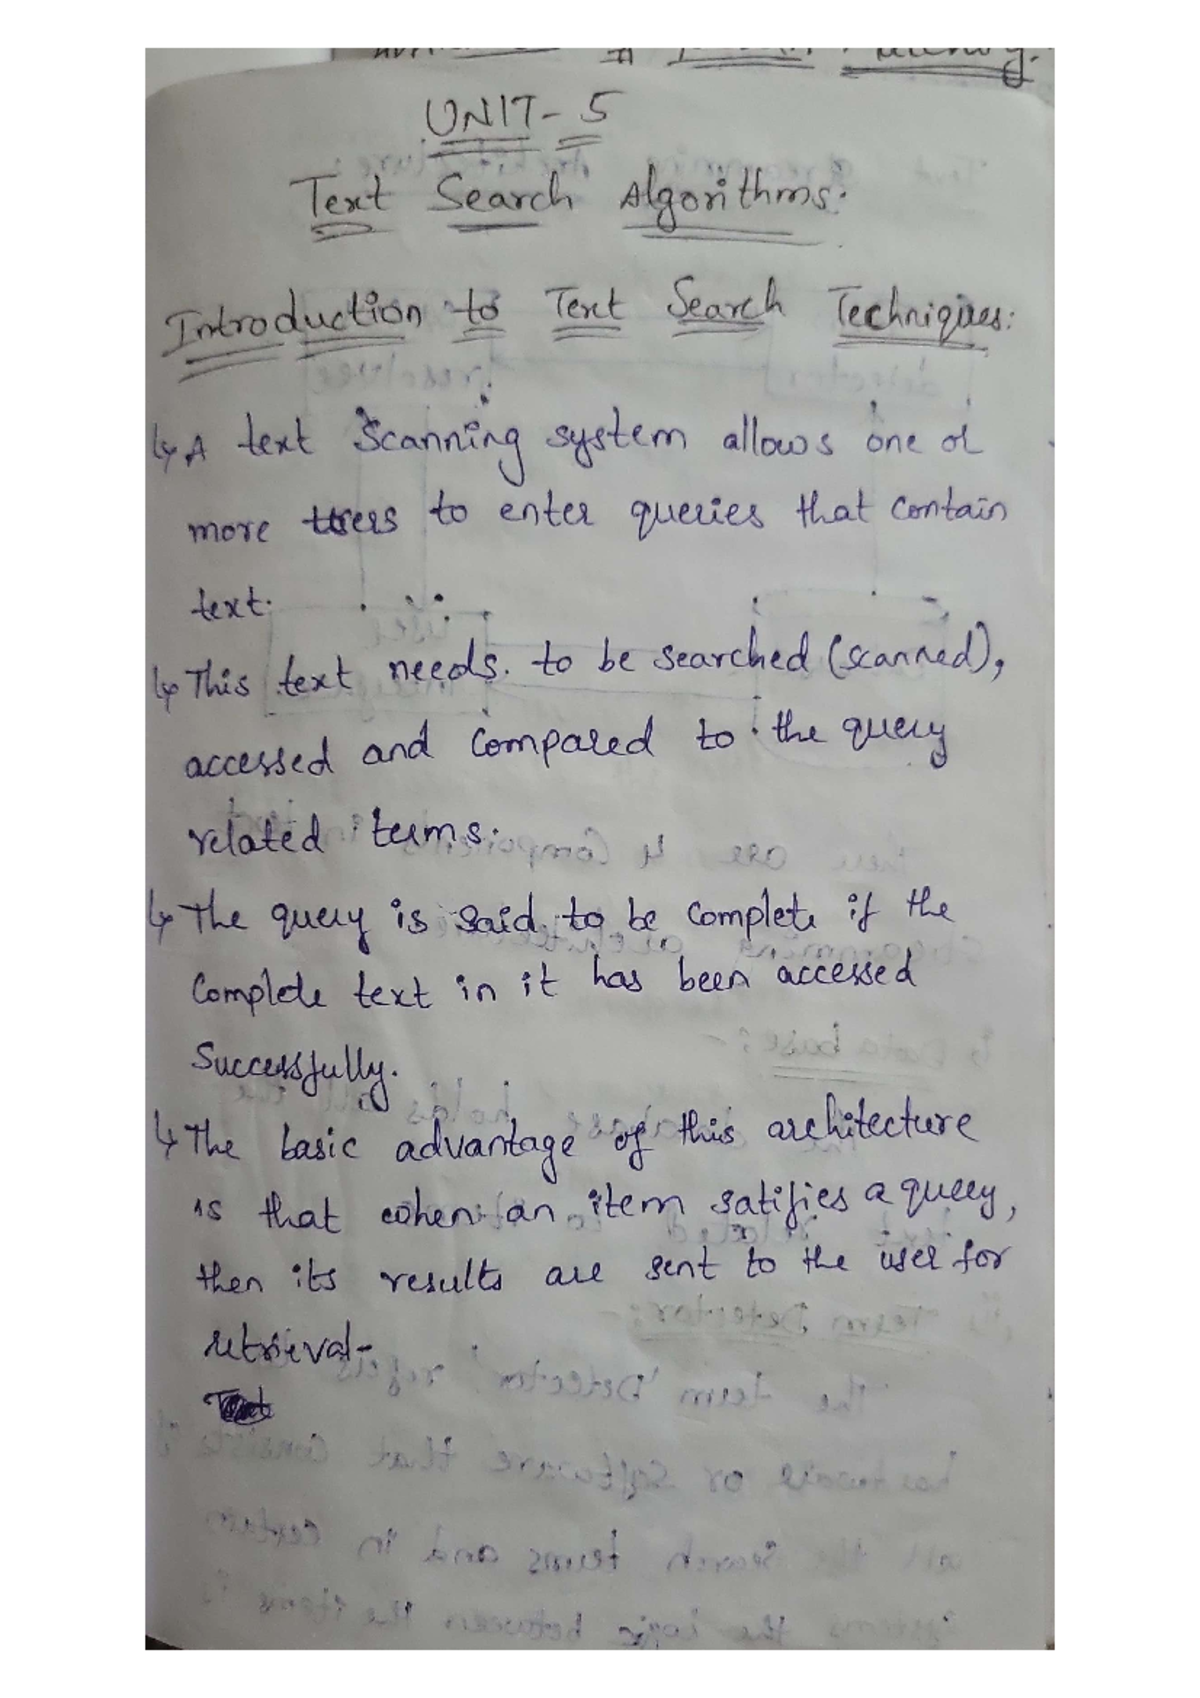 UNIT-5
Text Search Algorithms:
Introduction to Text Search Techniques:
↳ A text Scanning system allows one or
more users to enter queries that contain
text.
↳ This text needs to be searched (scanned),
accessed and compared to the query
related terms.
↳ The query is said to be complete if the
complete text in it has been accessed
Successfully.
↳ The basic advantage of this architecture
is that when an item satifies a query,
then its results are sent to the user for
retrieval-